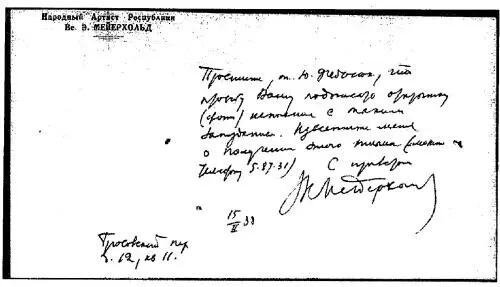 Народный Артист Республики
Вс. Э. МЕЙЕРХОЛЬД
Простите, т. Ю. что
просьбу Вашу подписать открытку
(фото) исполняю с таким
запозданием. Известите меня
о получении этого письма (можно
телефону 5.87.31) С приветом
В. Мейерхольд
15/II 33
Брюсовский пер
д. 12, кв 11.